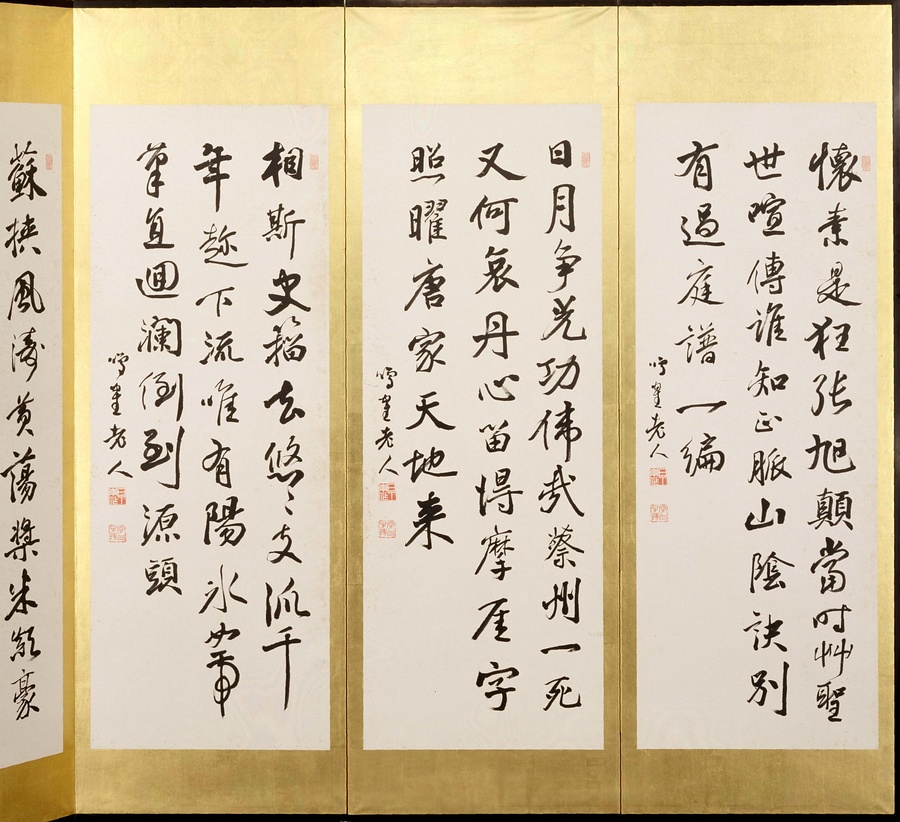 懷素是狂張旭顛當時艸聖
世喧傳誰知正脈山陰訣別
有過庭譜一編
鳴鶴老人
日月爭光功偉哉蔡州一死
又何哀丹心留得摩厓字
照曜唐家天地来
鳴鶴老人
相斯史籀去悠〻支派千
年趍下流唯有陽冰如椽
筆直迴瀾倒到源頭
鳴鶴老人
蘇挾風濤黄蕩槳米顛豪